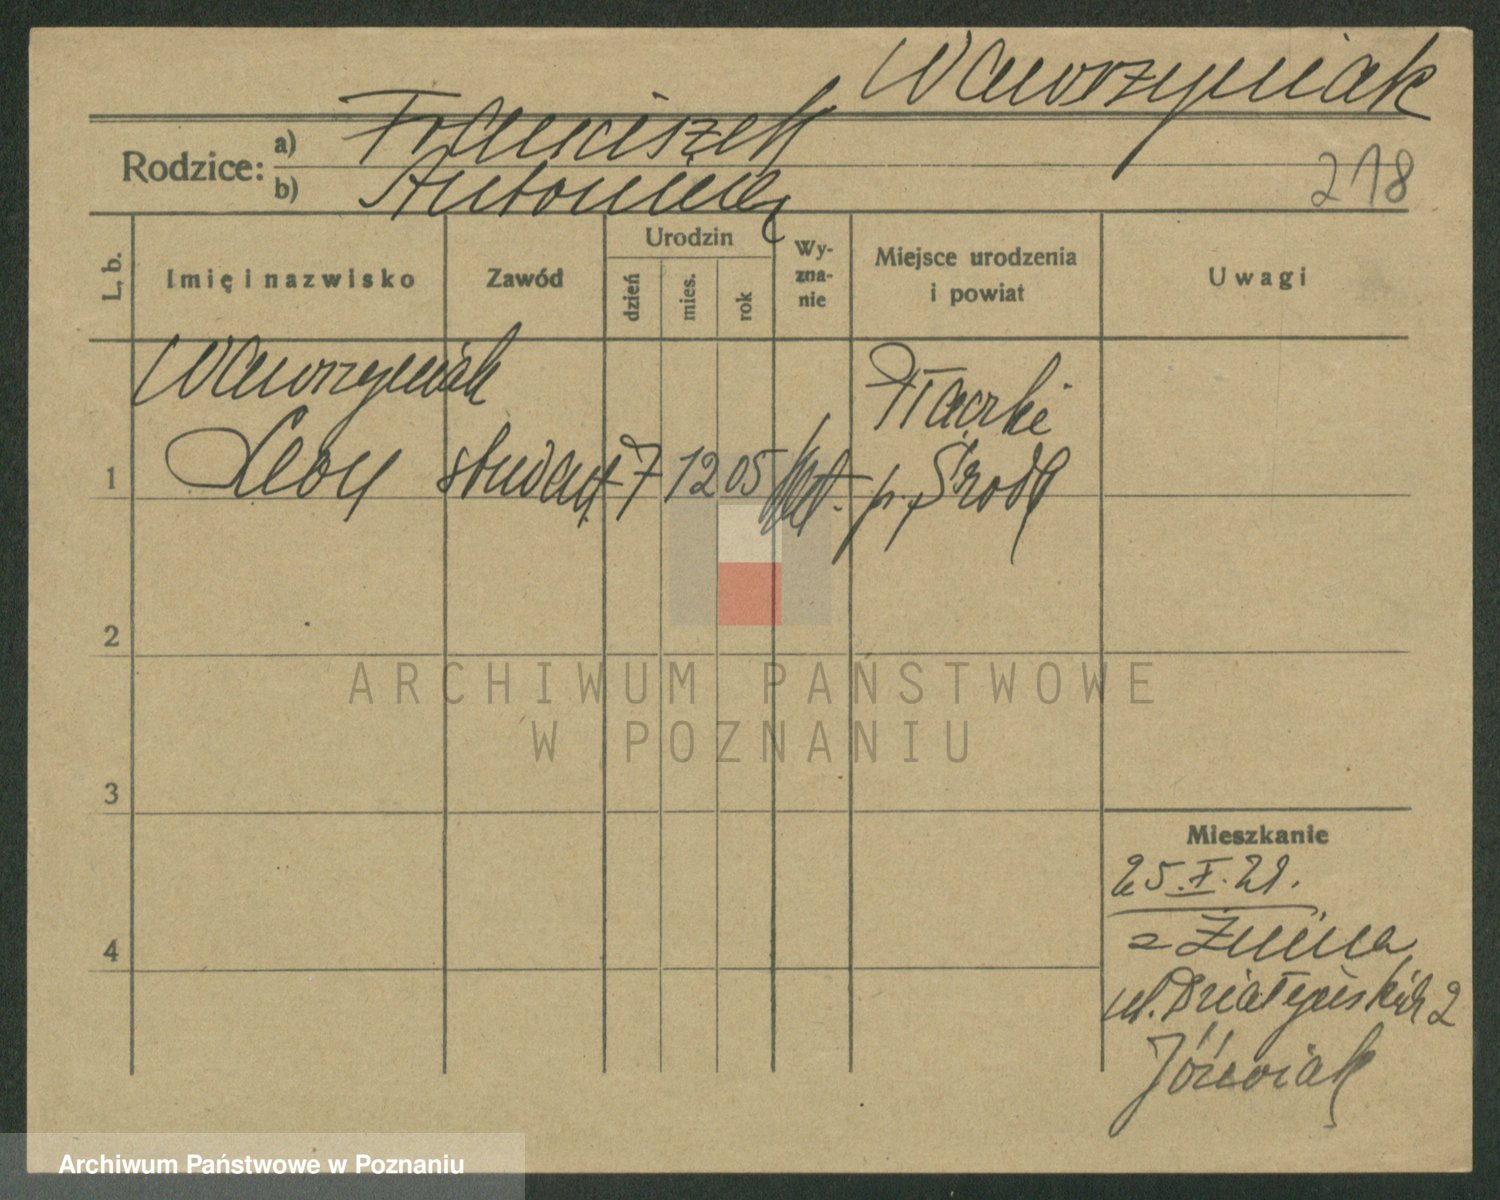 Wawrzyniak
Rodzice: a) Franciszek
b) Antonina
218
L. b.
Imię i nazwisko
Zawód
Urodzin
dzień
mies.
rok
Wy-
zna-
nie
Miejsce urodzenia
i powiat
Uwagi
Wawrzyniak
1 Leon student 7 12 05 kat. p. Środa
2
3
4
Mieszkanie
25.X.21.
z Żnina
ul. Działyńskich 2
Jóźwiak
ARCHIWUM PAŃSTWOWE
W POZNANIU
Archiwum Państwowe w Poznaniu